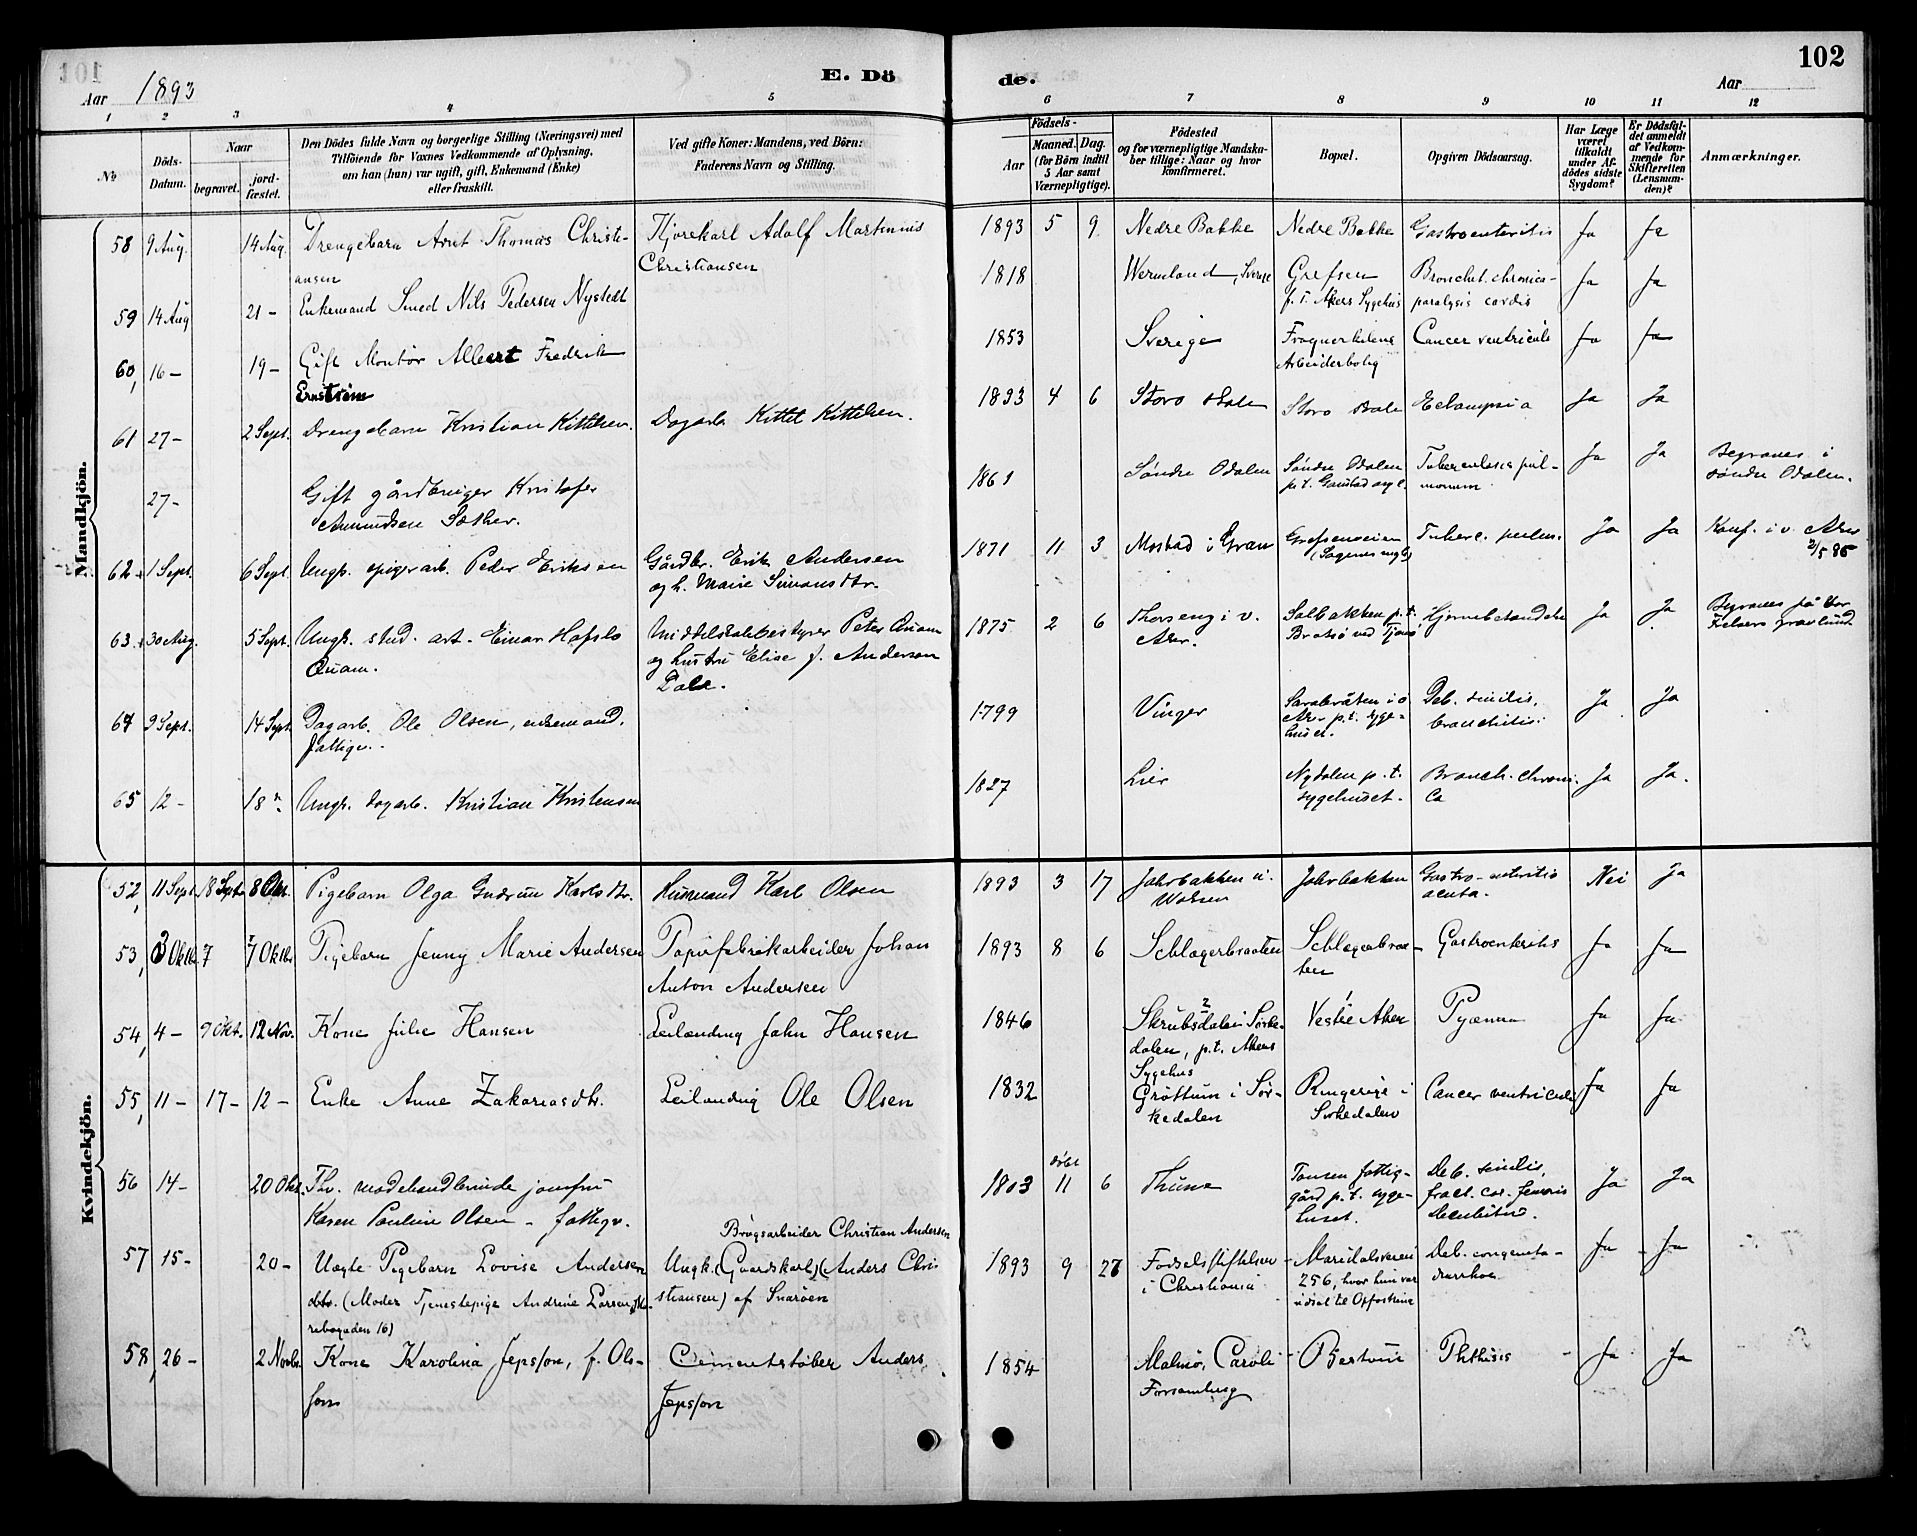 102
E. Dö
de.
Aar 1893
Aar
1 2 3 4 5 6 7 8 9 10 11 12
No
Döds-
Datum.
Naar
begravet.
jord-
fæstet.
Den Dödes fulde Navn og borgerlige Stilling (Næringsvei) med
Tilföiende for Voxnes Vedkommende af Oplysning,
om han (hun) var ugift, gift, Enkemand (Enke)
eller fraskilt.
Ved gifte Koner: Mandens, ved Börn:
Faderens Navn og Stilling.
Födsels-
Aar
Maaned. Dag.
(for Börn indtil
5 Aar samt
Værnepligtige).
Födested
og for værnepligtige Mandska-
ber tillige: Naar og hvor
konfirmeret.
Bopæl.
Opgiven Dödsaarsag.
Har Læge
været
tilkaldt
under Af-
dödes sidste
Sygdom?
Er Dödsfal-
det anmeldt
af Vedkom-
mende for
Skifteretten
(Lensman-
den)?
Anmærkninger.
Mandkjön.
58 9 Aug. 14 Aug. Drengebarn Arnt Thomas Christi-
ansen
Kjørekarl Adolf Martinius
Christiansen
1893 5 9 Nedre Bakke Nedre Bakke Gastroenteritis Ja Ja
59 14 Aug 21 - Enkemand Smed Nils Pedersen Nystedt
1818 Wermland, Sverige Grefsen
p. t. Akers Sygehus
Bronchit. chronica-
paralysis cordis
Ja Ja
60, 16 - 19 - Gift Montør Albert Fredrik
Ernström
1853 Sverige Frognerkilens
Arbeiderbolig
Cancer ventriculi Ja Ja
61 27 - 2 Sept. Drengebarn Kristian Kittilsen. Dagarb. Kittil Kittilsen.
1893 4 6 Storo skole Storo skole Eclampsia Ja Ja
27 - Gift gårdbruger Kristofer
Amundsen Sæther.
1861 Søndre Odalen Søndre Odalen
p. t. Gaustad asyl.
Tuberculosis pul-
monum
Ja Ja Begraves i
søndre Odalen.
62 1 Sept. 6 Sept. Ungk. spigerarb. Peder Eriksen Gårdbr. Erik Andersen
og h. Marie Simonsdtr.
1871 11 3 Mostad i Gran Grefsenveien
Tuberc. pulm. Ja Ja Konf. i v. Aker
2/5 86
63 30 Aug. 5 Sept. Ungk. stud. art. Einar Hofslo
Quam.
Middelskolebestyrer Peter Quam
og hustru Elise f. Anderson
Dale.
1875 2 6 Thorseng i v.
Aker.
Solbakken p. t.
Bratsø ved Tjømø
Hjernebetændelse Ja Ja Begraves på Vor
Frelsers gravlund
64 9 Sept. 14 Sept. Dagarb. Ole Olsen, enkemand.
fattigv.
1799 Vinger Sarabråten i ø.
Aker p. t. syge-
huset.
Deb. senilis,
bronchitis.
Ja Ja
65 12 - 18 Ungk. dagarb. Kristian Kristensen
1827 Lier Nydalen p. t.
sygehuset.
Bronch. chroni-
ca
Ja Ja.
Kvindekjön.
52, 11 Sept. 18 Sept. 8 Okt. Pigebarn Olga Gudrun Karlsdtr. Husmand Karl Olsen
1893 3 17 Jahrbakken u.
Jahrbakken Gastro-enteritis
acuta.
Nei Ja
53, 3 Oktb. 7 7 Oktbr. Pigebarn Jenny Marie Andersen Papirfabrikarbeider Johan
Anton Andersen
1893 8 6 Schlagerbraaten Schlagerbraa-
ten
Gastroenteritis Ja Ja
54, 4 - 9 Okt. 12 Nov. Kone Julie Hansen Leilænding John Hansen
1846 Skrubsdalen i Sørke-
dalen, p. t. Akers
Sygehus
Vestre Aker Pyæmia Ja Ja
55, 11 - 17 - 12 - Enke Anne Zakariasdtr. Leilænding Ole Olsen
1832 Grøttum i Sør-
kedalen
Ringerige i
Sørkedalen
Cancer ventriculi Ja Ja
56 14 - 20 Okt. Fhv. modehandlerinde jomfru
Karen Pauline Olsen - fattigv.
1803 11 6 Thune Tonsen fattig-
gård p. t. syge-
huset.
Deb. senilis,
fract. col. femoris
Decubitus.
Ja Ja
57 15 - 20 - Uægte Pigebarn Lovise Andersen
dtr. (Moder Tjenestepige Andrine Larsen,
rebogaden 16)
Brugsarbeider Christian Andersen
Ungk. (Gaardskarl) (Anders Chri
stiansen) af Snarøen
1893 9 27 Fødselsstiftelsen
i Christiania
Maridalsveien
256, hvor hun var
udsat til Opfostring
Deb. congenita-
diarrhoe
Ja Ja
58, 26 - 2 Novbr. Kone Karolina Jepsson, f. Ols-
son
Cementstøber Anders
Jepsson
1854 Malmø, Caroli
Forsamling
Bestum Phthisis Ja Ja